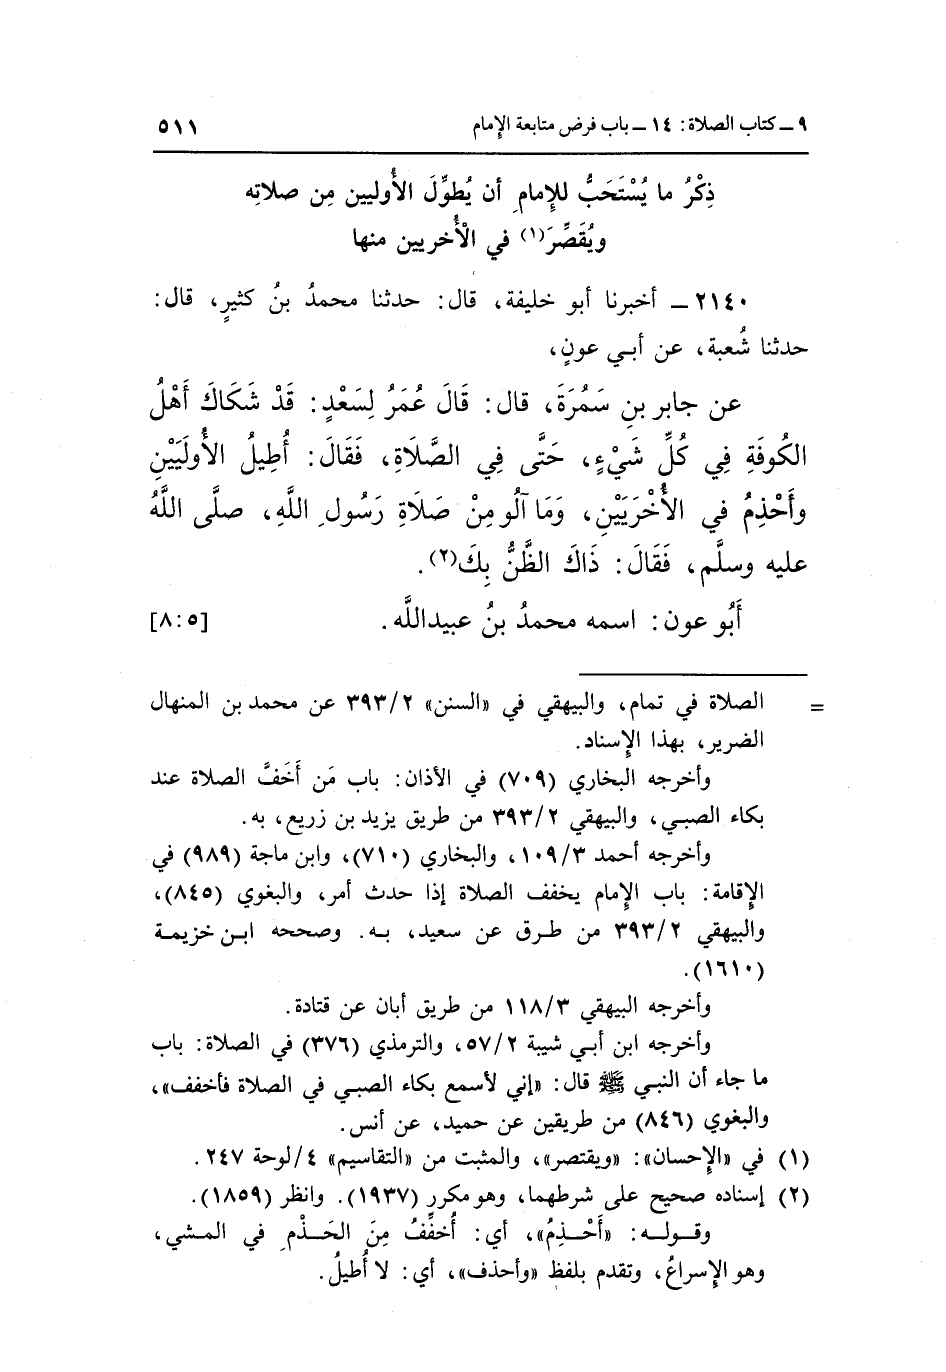 ٩ ــ كتاب الصلاة: ١٤ ــ باب فرض متابعة الإمام ٥١١
ذِكْرُ ما يُسْتَحَبُّ للإِمامِ أن يُطوِّلَ الأُوليين مِن صلاتِه
ويُقَصِّرَ(١) في الْأُخريين منها
٢١٤٠ ــ أخبرنا أبو خليفة، قال: حدثنا محمدُ بنُ كثيرٍ، قال:
حدثنا شُعبة، عن أبي عونٍ،
عن جابر بنِ سَمُرَةَ، قال: قَالَ عُمَرُ لِسَعْدٍ: قَدْ شَكَاكَ أَهْلُ
الكُوفَةِ فِي كُلِّ شَيْءٍ، حَتَّى فِي الصَّلَاةِ، فَقَالَ: أُطِيلُ الأُولَيَيْنِ
وأَحْذِمُ في الأُخْرَيَيْنِ، وَمَا آلُو مِنْ صَلَاةِ رَسُولِ اللَّهِ، صلَّى اللَّهُ
عليه وسلَّم، فَقَالَ: ذَاكَ الظَّنُّ بِكَ(٢).
أَبُو عون: اسمه محمدُ بنُ عبيداللَّه. [٨:٥]
= الصلاة في تمام، والبيهقي في «السنن» ٣٩٣/٢ عن محمد بن المنهال
الضرير، بهذا الإسناد.
وأخرجه البخاري (٧٠٩) في الأذان: باب مَن أَخَفَّ الصلاة عند
بكاء الصبي، والبيهقي ٣٩٣/٢ من طريق يزيد بن زريع، به.
وأخرجه أحمد ١٠٩/٣، والبخاري (٧١٠)، وابن ماجة (٩٨٩) في
الإقامة: باب الإمام يخفف الصلاة إذا حدث أمر، والبغوي (٨٤٥)،
والبيهقي ٣٩٣/٢ من طرق عن سعيد، به. وصححه ابن خزيمة
(١٦١٠).
وأخرجه البيهقي ١١٨/٣ من طريق أبان عن قتادة.
وأخرجه ابن أبي شيبة ٥٧/٢، والترمذي (٣٧٦) في الصلاة: باب
ما جاء أن النبي ﷺ قال: «إني لأسمع بكاء الصبي في الصلاة فأخفف»،
والبغوي (٨٤٦) من طريقين عن حميد، عن أنس.
(١) في «الإحسان»: «ويقتصر»، والمثبت من «التقاسيم» ٤/لوحة ٢٤٧.
(٢) إسناده صحيح على شرطهما، وهو مكرر (١٩٣٧). وانظر (١٨٥٩).
وقوله: «أَحْذِمُ»، أي: أُخفِّفُ مِنَ الحَذْمِ في المشي،
وهو الإسراعُ، وتقدم بلفظ «وأحذف»، أي: لا أُطيلُ.